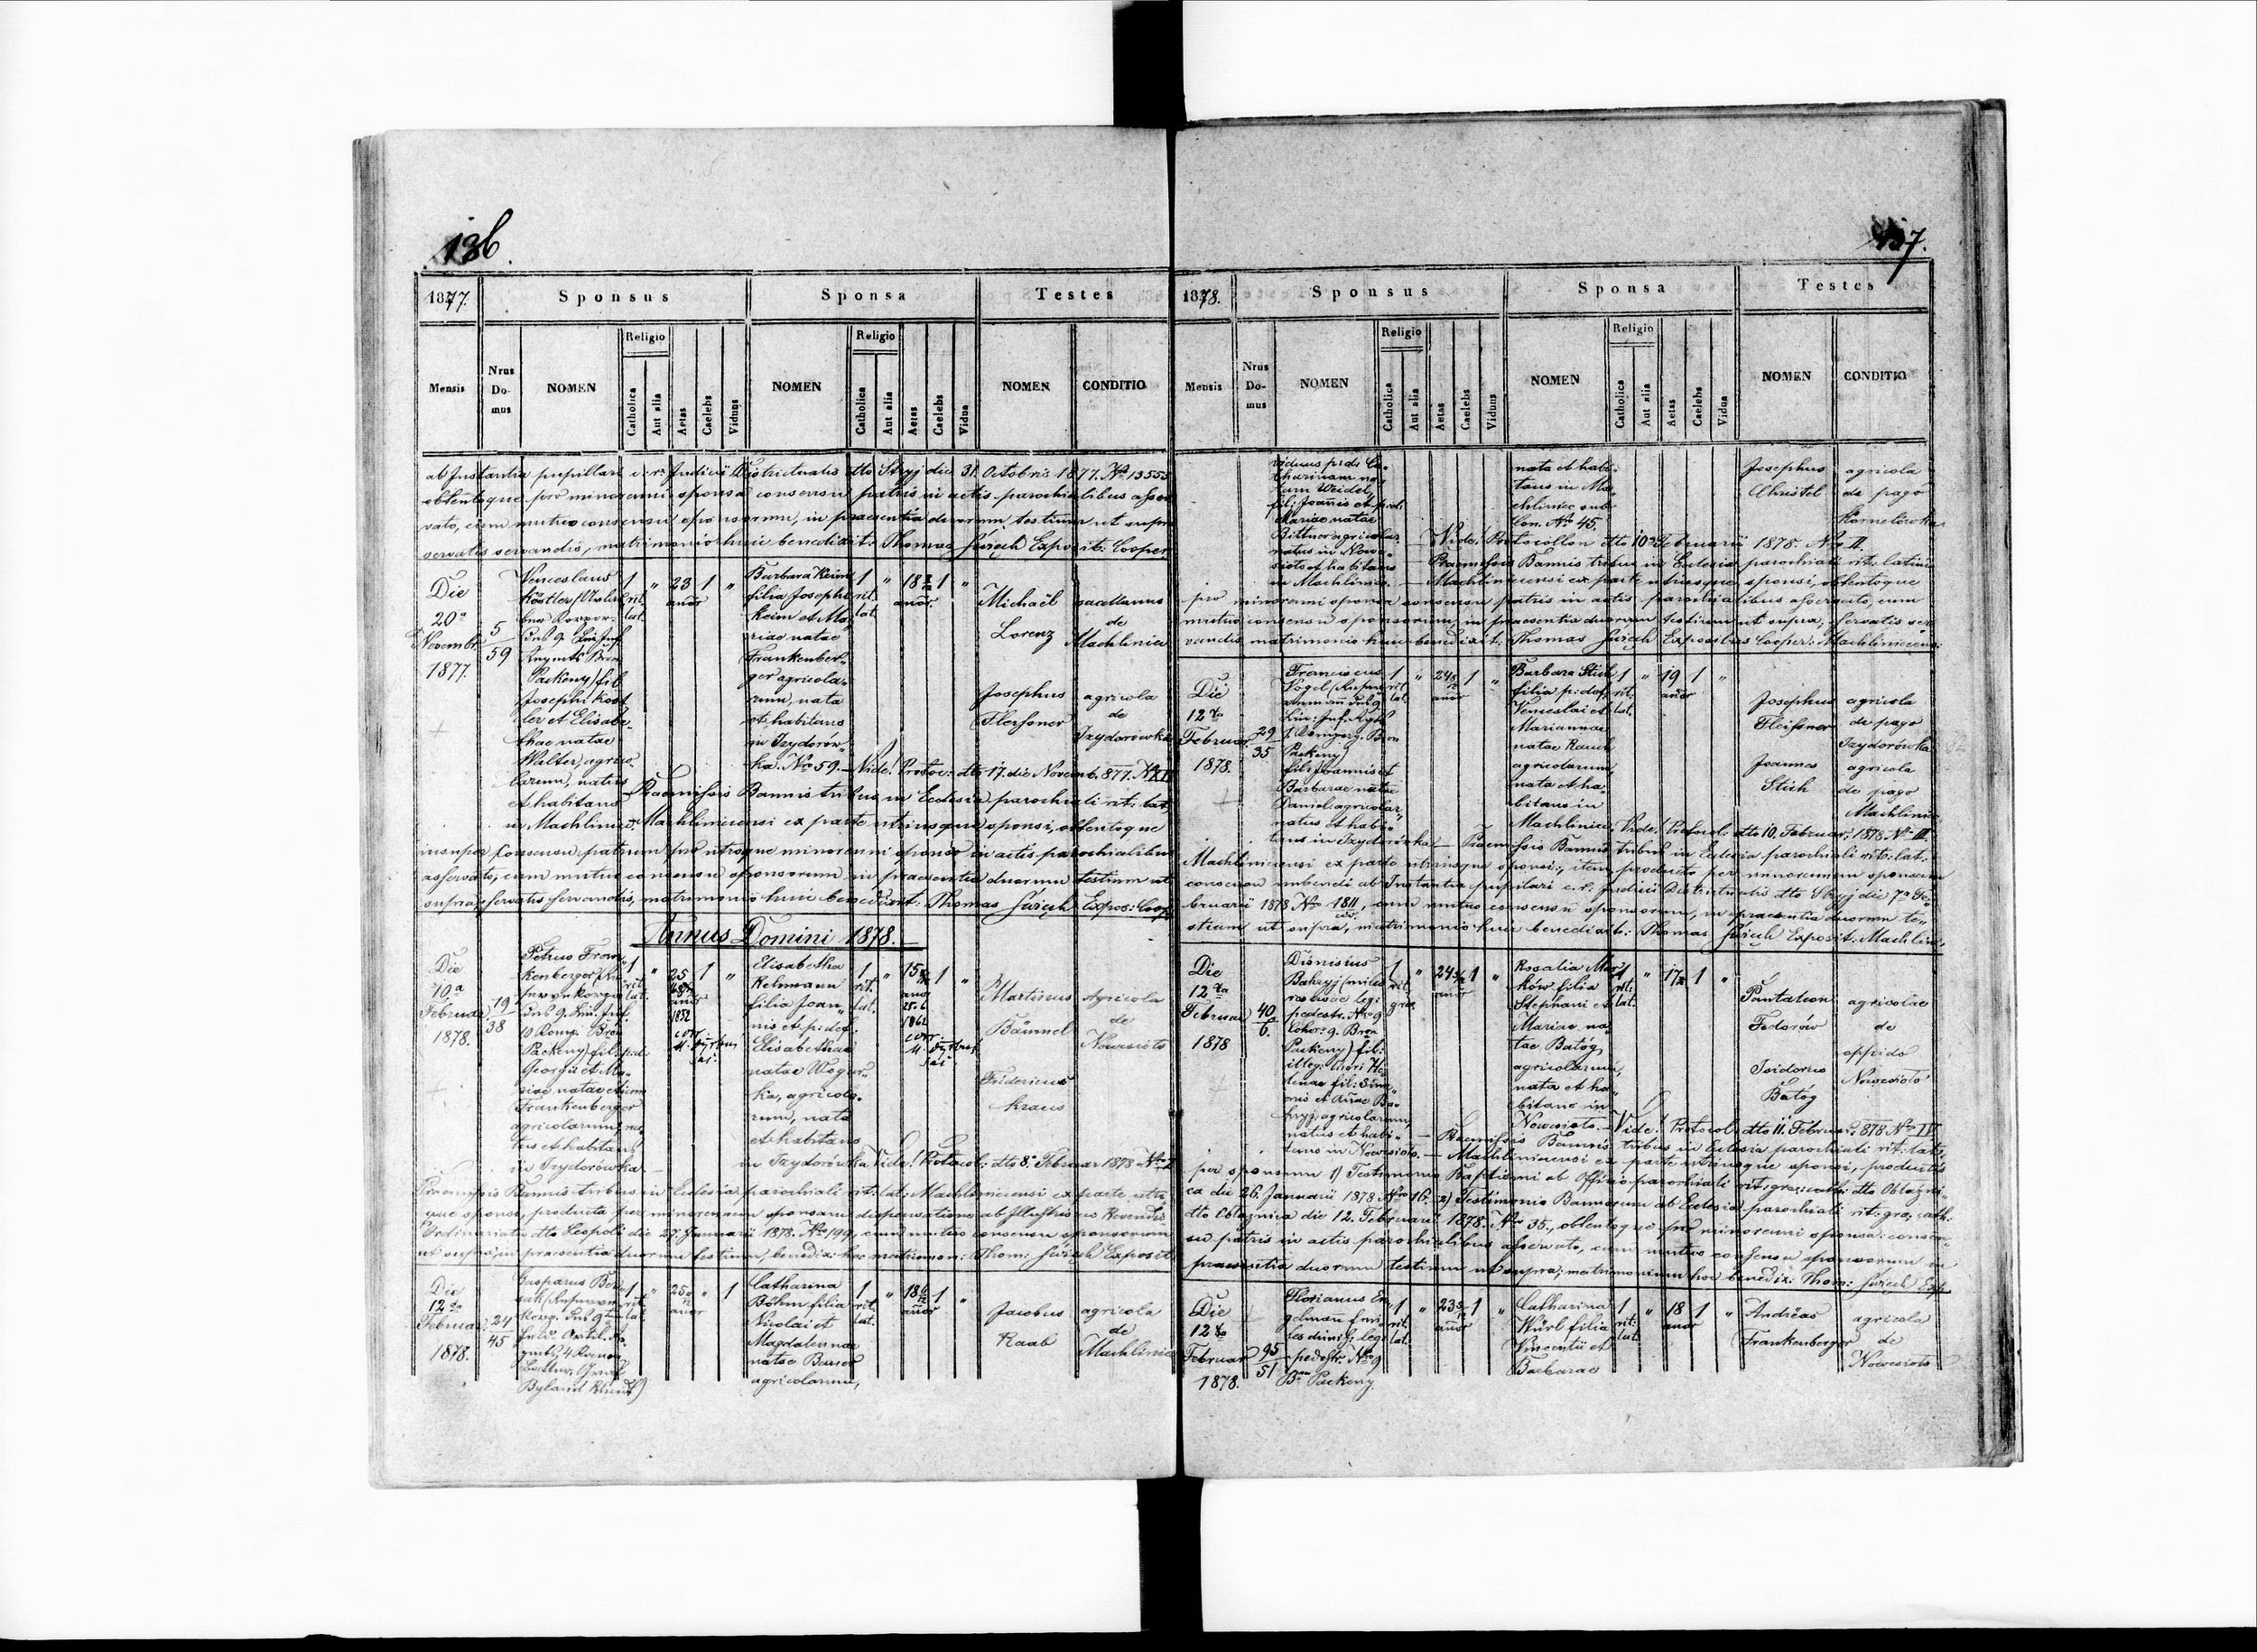 136.
1877.
Sponsus
Sponsa
Testes
Mensis
Nrus Do- mus
NOMEN
Religio
Catholica
Aut alia
Aetas
Caelebs
Viduus
NOMEN
Religio
Catholica
Aut alia
Aetas
Caelebs
Vidua
NOMEN
CONDITIO
ab Instantia pupillari c. r. Judicii Districtualis dto Stryj die 31. Octobris 1877. Nro 13555
obtentoque pro minorenni sponsa consensu patris in actis parochialibus asser
vato, cum mutuo consensu sponsorum, in praesentia duorum testium ut supra
servatis servandis, matrimonio huic benedixit: Thomas Święch Exposit: Cooper
Die
20a
Novembr.
1877.
5
59
Venceslaus
Köstler
9.
Packeny) fil.
Josephi Köst
ler et Elisabe
thae natae
Walter, agrico
larum, natus
et habitans
in Machliniec.
1
rit.
lat.
"
23
annor
1
"
Barbara Keim
filia Josephi
Keim et Ma
riae natae
Frankenber-
ger agricola-
rum, nata
et habitans
in Izydorów-
ka. Nro 59.
1
rit.
lat.
"
18
annor.
1
"
Michaël
Lorenz
de
Machliniec
Josephus
agricola
de
Izydorówka
Vide! Protoc: dto 17. die Novemb. 877.
Praemissis Bannis tribus in Ecclesia parochiali rit: lat.
Machliniecensi ex parte utriusque sponsi, obtentoque
insuper consensu patrum pro utroque minorenni sponso in actis parochialibus
asservato, cum mutuo consensu sponsorum in praesentia duorum testium ut
supra, servatis servandis, matrimonio huic benedixit: Thomas Święch Expos: Coop
Annus Domini 1878.
Die
10a
Februar
1878.
19
38
Petrus Fran
kenberger
9.
Packeny) fil: p:d:
Georgii et Ma-
riae natae
Frankenberger
agricolarum, na
tus et habitans
in Izydorówka.
1
rit.
lat.
"
25
annor
1852
corr.
1
"
Elisabetha
Rehmann
filia Joan
nis et p: def.
Elisabethae
natae
agricola-
rum, nata
et habitans
in Izydorówka.
1
rit.
lat.
"
15
annor
1862
corr.
1
"
Martinus
Bäumel
Agricola
de
Nowesioło
Fridericus
Kraus
Vide! Protocol: dto 8. Februar 1878 Nro I.
Praemissis Bannis tribus in Ecclesia parochiali rit: lat: Machliniecensi ex parte utri
que sponsi, producta per minorennem sponsam dispensatione ab
Ordinariatu dto Leopoli die 27. Januarii 1878. Nro 199, cum mutuo consensu sponsorum
ut supra, in praesentia duorum testium, matrimon: Thom: Święch Exposit
Die
12ta
Februar
1878.
24
45
Gasparus
4
Byland
1
rit.
lat
"
25
annor
"
1
Catharina
Böhm filia
Nicolai et
Magdalenae
natae
agricolarum,
1
rit.
lat.
"
18
annor
1
"
Jacobus
Raab
agricola
de
Machliniec
137.
1878.
Sponsus
Sponsa
Testes
Mensis
Nrus Do- mus
NOMEN
Religio
Catholica
Aut alia
Aetas
Caelebs
Viduus
NOMEN
Religio
Catholica
Aut alia
Aetas
Caelebs
Vidua
NOMEN
CONDITIO
viduus p: d: Ca-
tharinam na
tam Weidel,
fil: Joannis et p: d:
Mariae natae
Bittner agricolar.
natus in Nowe-
sioło et habitans
in Machliniec.
nata et habi-
tans in Ma
chliniec sub
Con. Nro 45.
Josephus
Christel
agricola
de pago
Kornelówka
Vide! Protocollon dto 10a Februarii 1878. Nro II.
Praemissis Bannis tribus in Ecclesia parochiali rit: latini
Machliniecensi ex parte utriusque sponsi, obtentoque
pro minorenni sponsa consensu patris in actis parochialibus asservato, cum
mutuo consensu sponsorum, in praesentia duorum testium ut supra, servatis ser
vandis matrimonio huic benedixit: Thomas Święch Expositus Cooper: Machliniecensis
Die
12ta
Februar
1878.
29
35
Franciscus
Vogel
9
Packeny)
fil: Joannis et
Barbarae natae
Daniel agricolar
natus et habi-
tans in Izydorówka
1
rit.
lat.
"
24
annor
1
"
Barbara Stich
filia p: def.
Venceslai et
Mariannae
natae Rauch
agricolarum,
nata et ha-
bitans in
Machliniec.
1
rit.
lat.
"
19
annor
1
"
Josephus
Fleissner
agricola
de pago
Izydorówka
Joannes
Stich
agricola
de pago
Machliniec
Vide! Protocol: dto 10. Februar: 1878. Nro III.
Praemissis Bannis tribus in Ecclesia parochiali rit: lat:
Machliniecensi ex parte utriusque sponsi, item producto per minorennem sponsam
consensu nubendi ab Instantia pupilari c. r. Judicii Districtualis dto Stryj die 7a Fe-
bruarii 1878 Nro 1811, cum mutuo consensu sponsorum, in praesentia duorum te-
stium ut supra, matrimonio huic benedixit: Thomas Święch Exposit. Machlin:
Die
12ta
Februar
1878
40
6.
Dionisius
Bahryj
pedestr. Nro 9
Cohor: 9. Bron
Packeny) fil:
illeg: thori He-
lenae fil: Simo-
nis et Annae Ba-
hryj agricolarum,
natus et habi-
tans in Nowesioło.
1
rit.
grae
"
24
annor
1
"
Rosalia Mar
ków filia
Stephani et
Mariae na-
tae Batóg
agricolarum,
nata et ha-
bitans in
Nowesioło.
1
rit.
lat.
"
17
1
"
Pantaleon
Fedorów
agricolae
de
oppido
Nowesioło
Isidorus
Batóg
Vide! Protocol: dto 11. Februar: 878 Nro IV.
Praemissis Bannis tribus in Ecclesia parochiali rit: lat:
Machliniecensi ex parte utriusque sponsi, productis
per sponsum 1) Testimonio Baptismi ab Officio parochiali rit: grae: cath: dto Obłaźni-
ca die 26. Januarii 1878 Nro 16. 2) Testimonio Bannorum ab Ecclesia parochiali rit: gre: cath.
dto Obłaźnica die 12. Februarii 1878. Nro 35., obtentoque pro minorenni sponsa consen-
su patris in actis parochialibus asservato, cum mutuo consensu sponsorum in
praesentia duorum testium ut supra, matrimonium hoc benedix: Thom: Święch Exp.
Die
12ta
Februar
1878.
95
51
Florianus En
gelmann
pedestr. Nro 9
Packeny.
1
rit.
lat.
"
23
annor
1
"
Catharina
Würl filia
Vincentii et
Barbarae
1
rit.
lat.
"
18
annor
1
"
Andreas
Frankenberger
agricola
de
Nowesioło